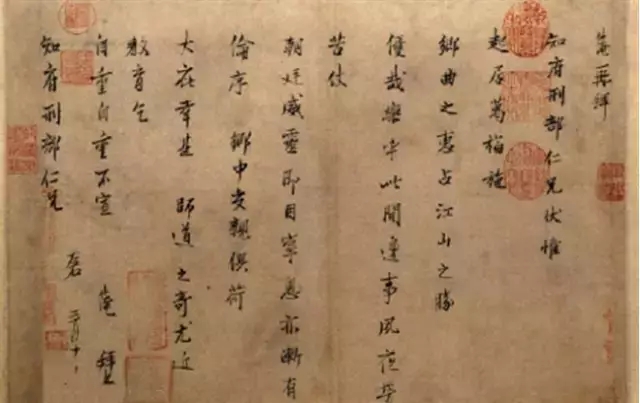 淹再拜
知府刑部仁兄伏惟
起居萬福施
鄉曲之惠占江山之勝
優哉樂乎此間邊事夙夜勞
苦仗
朝廷威靈即目寧息亦漸有
倫序鄉中交親俱荷
大庇幸甚 師道之奇尤近
教育乞
自重自重不宣 淹 拜上
知府刑部仁兄 左右 三月十日